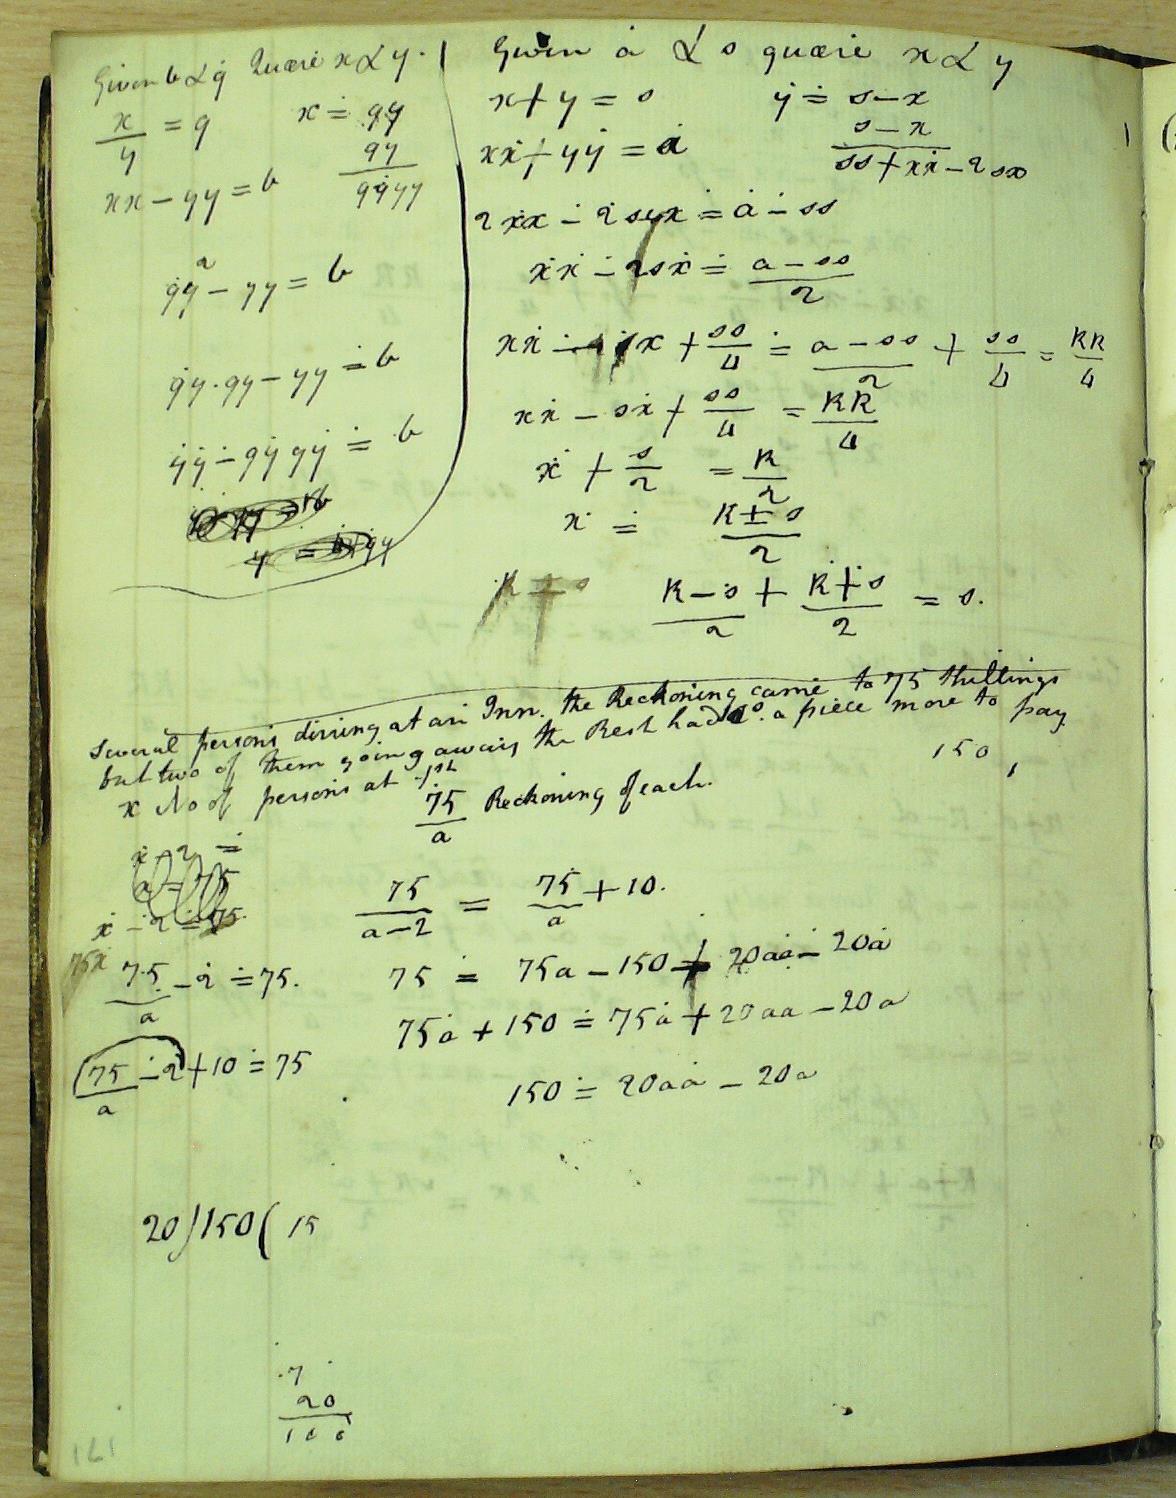 Given b & q Quære x & y.
x/y = q
x = qy
qy/qqyy
xx - yy = b
qy² - yy = b
qy.qy - yy = b
yy - qy qy = b
Given a & s quære x & y
x + y = s
y = s - x
s - x
ss + xx - 2sx
xx + yy = a
2xx - 2sx = a - ss
xx - 2sx = a - ss/2
xx - x + ss/4 = a - ss/2 + ss/4 = RR/4
xx - sx + ss/4 = RR/4
x + s/2 = R/2
x = R ± s/2
R - s/2 + R + s/2 = s.
Several persons dining at an Inn. the Reckoning came to 75 shillings
but two of them going away the Rest had 10s. a piece more to pay
x No of persons at 1st
150
75/a Reckoning of each.
x - 2 =
a = 75
x - 2 = 75
75x
75/a - 2 = 75.
75/a - 2 + 10 = 75
75/a-2 = 75/a + 10.
75 = 75a - 150 + 20aa - 20a
75a + 150 = 75a + 20aa - 20a
150 = 20aa - 20a
20)150(15
7
20
161